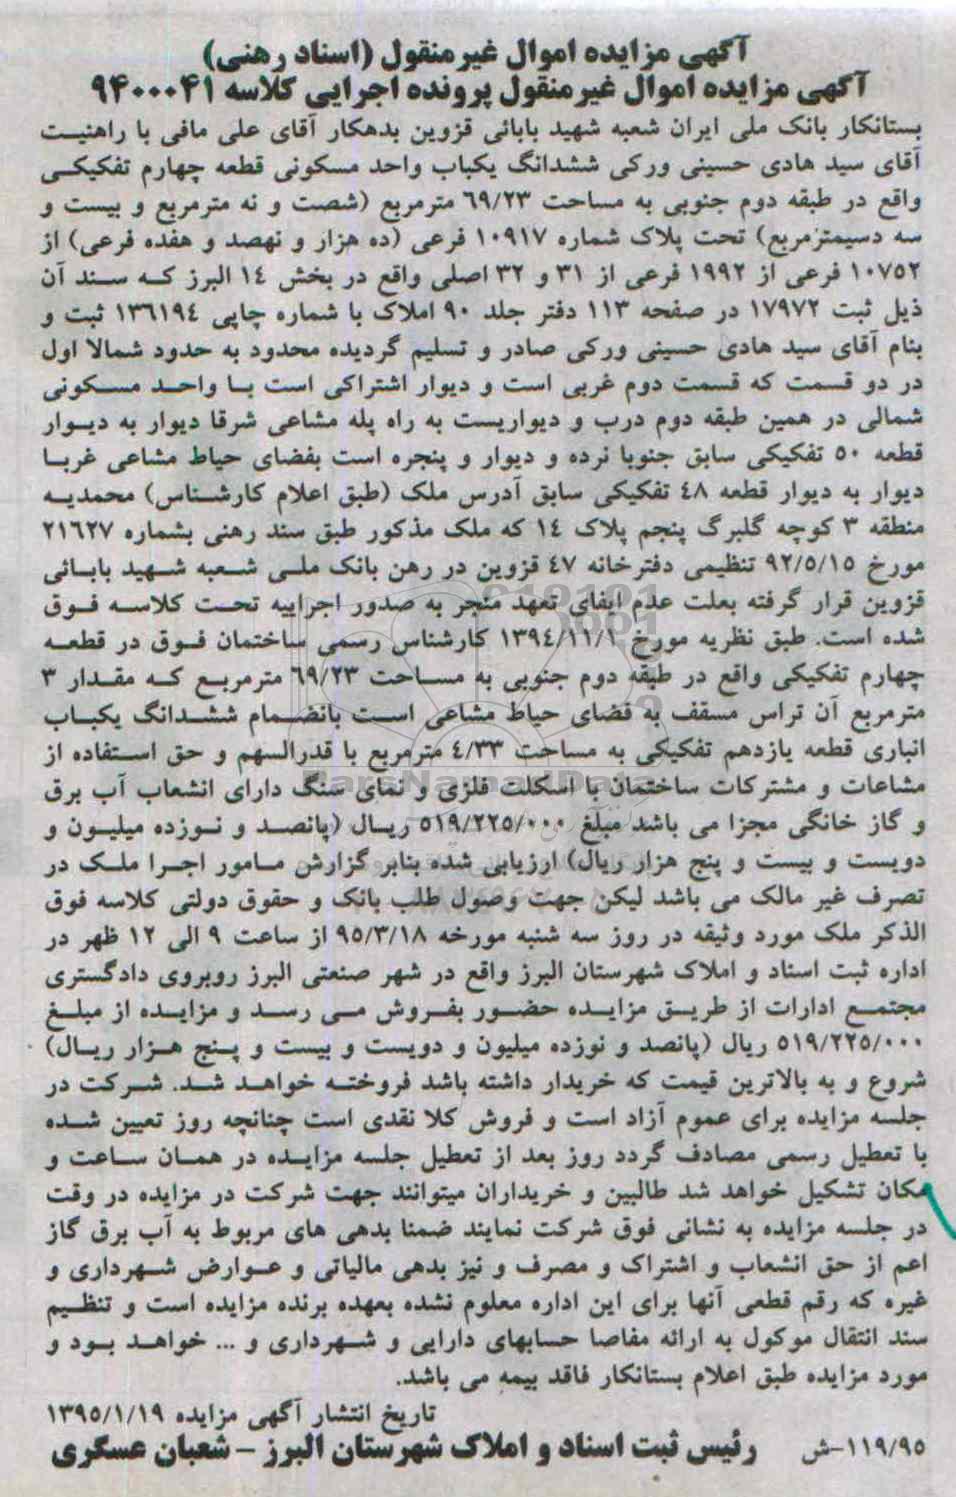 آگهی مزایده اموال غیرمنقول (اسناد رهنی)
آگهی مزایده اموال غیرمنقول پرونده اجرایی کلاسه ۹۴۰۰۰۴۱
بستانکار بانک ملی ایران شعبه شهید بابائی قزوین بدهکار آقای علی مافی با راهنیت
آقای سید هادی حسینی ورکی ششدانگ یکباب واحد مسکونی قطعه چهارم تفکیکی
واقع در طبقه دوم جنوبی به مساحت ۶۹/۲۳ مترمربع (شصت و نه مترمربع و بیست و
سه دسیمترمربع) تحت پلاک شماره ۱۰۹۱۷ فرعی (ده هزار و نهصد و هفده فرعی) از
۱۰۷۵۲ فرعی از ۱۹۹۲ فرعی از ۳۱ و ۳۲ اصلی واقع در بخش ۱۴ البرز که سند آن
ذیل ثبت ۱۷۹۷۲ در صفحه ۱۱۳ دفتر جلد ۹۰ املاک با شماره چاپی ۱۳۶۱۹۴ ثبت و
بنام آقای سید هادی حسینی ورکی صادر و تسلیم گردیده محدود به حدود شمالا اول
در دو قسمت که قسمت دوم غربی است و دیوار اشتراکی است با واحد مسکونی
شمالی در همین طبقه دوم درب و دیواریست به راه پله مشاعی شرقا دیوار به دیوار
قطعه ۵۰ تفکیکی سابق جنوبا نرده و دیوار و پنجره است بفضای حیاط مشاعی غربا
دیوار به دیوار قطعه ۴۸ تفکیکی سابق آدرس ملک (طبق اعلام کارشناس) محمدیه
منطقه ۳ کوچه گلبرگ پنجم پلاک ۱۴ که ملک مذکور طبق سند رهنی بشماره ۲۱۶۲۷
مورخ ۹۲/۵/۱۵ تنظیمی دفترخانه ۴۷ قزوین در رهن بانک ملی شعبه شهید بابائی
قزوین قرار گرفته بعلت عدم ایفای تعهد منجر به صدور اجراییه تحت کلاسه فوق
شده است. طبق نظریه مورخ ۱۳۹۴/۱۱/۱ کارشناس رسمی ساختمان فوق در قطعه
چهارم تفکیکی واقع در طبقه دوم جنوبی به مساحت ۶۹/۲۳ مترمربع که مقدار ۳
مترمربع آن تراس مسقف به فضای حیاط مشاعی است بانضمام ششدانگ یکباب
انباری قطعه یازدهم تفکیکی به مساحت ۴/۳۳ مترمربع با قدرالسهم و حق استفاده از
مشاعات و مشترکات ساختمان با اسکلت فلزی و نمای سنگ دارای انشعاب آب برق
و گاز خانگی مجزا می باشد مبلغ ۵۱۹/۲۲۵/۰۰۰ ریال (پانصد و نوزده میلیون و
دویست و بیست و پنج هزار ریال) ارزیابی شده بنابر گزارش مامور اجرا ملک در
تصرف غیر مالک می باشد لیکن جهت وصول طلب بانک و حقوق دولتی کلاسه فوق
الذکر ملک مورد وثیقه در روز سه شنبه مورخه ۹۵/۳/۱۸ از ساعت ۹ الی ۱۲ ظهر در
اداره ثبت اسناد و املاک شهرستان البرز واقع در شهر صنعتی البرز روبروی دادگستری
مجتمع ادارات از طریق مزایده حضور بفروش می رسد و مزایده از مبلغ
۵۱۹/۲۲۵/۰۰۰ ریال (پانصد و نوزده میلیون و دویست و بیست و پنج هزار ریال)
شروع و به بالاترین قیمت که خریدار داشته باشد فروخته خواهد شد. شرکت در
جلسه مزایده برای عموم آزاد است و فروش کلا نقدی است چنانچه روز تعیین شده
با تعطیل رسمی مصادف گردد روز بعد از تعطیل جلسه مزایده در همان ساعت و
مکان تشکیل خواهد شد طالبین و خریداران میتوانند جهت شرکت در مزایده در وقت
در جلسه مزایده به نشانی فوق شرکت نمایند ضمنا بدهی های مربوط به آب برق گاز
اعم از حق انشعاب و اشتراک و مصرف و نیز بدهی مالیاتی و عوارض شهرداری و
غیره که رقم قطعی آنها برای این اداره معلوم نشده بعهده برنده مزایده است و تنظیم
سند انتقال موکول به ارائه مفاصا حسابهای دارایی و شهرداری و ... خواهد بود و
مورد مزایده طبق اعلام بستانکار فاقد بیمه می باشد.
تاریخ انتشار آگهی مزایده ۱۳۹۵/۱/۱۹
۱۱۹/۹۵-ش رئیس ثبت اسناد و املاک شهرستان البرز - شعبان عسگری